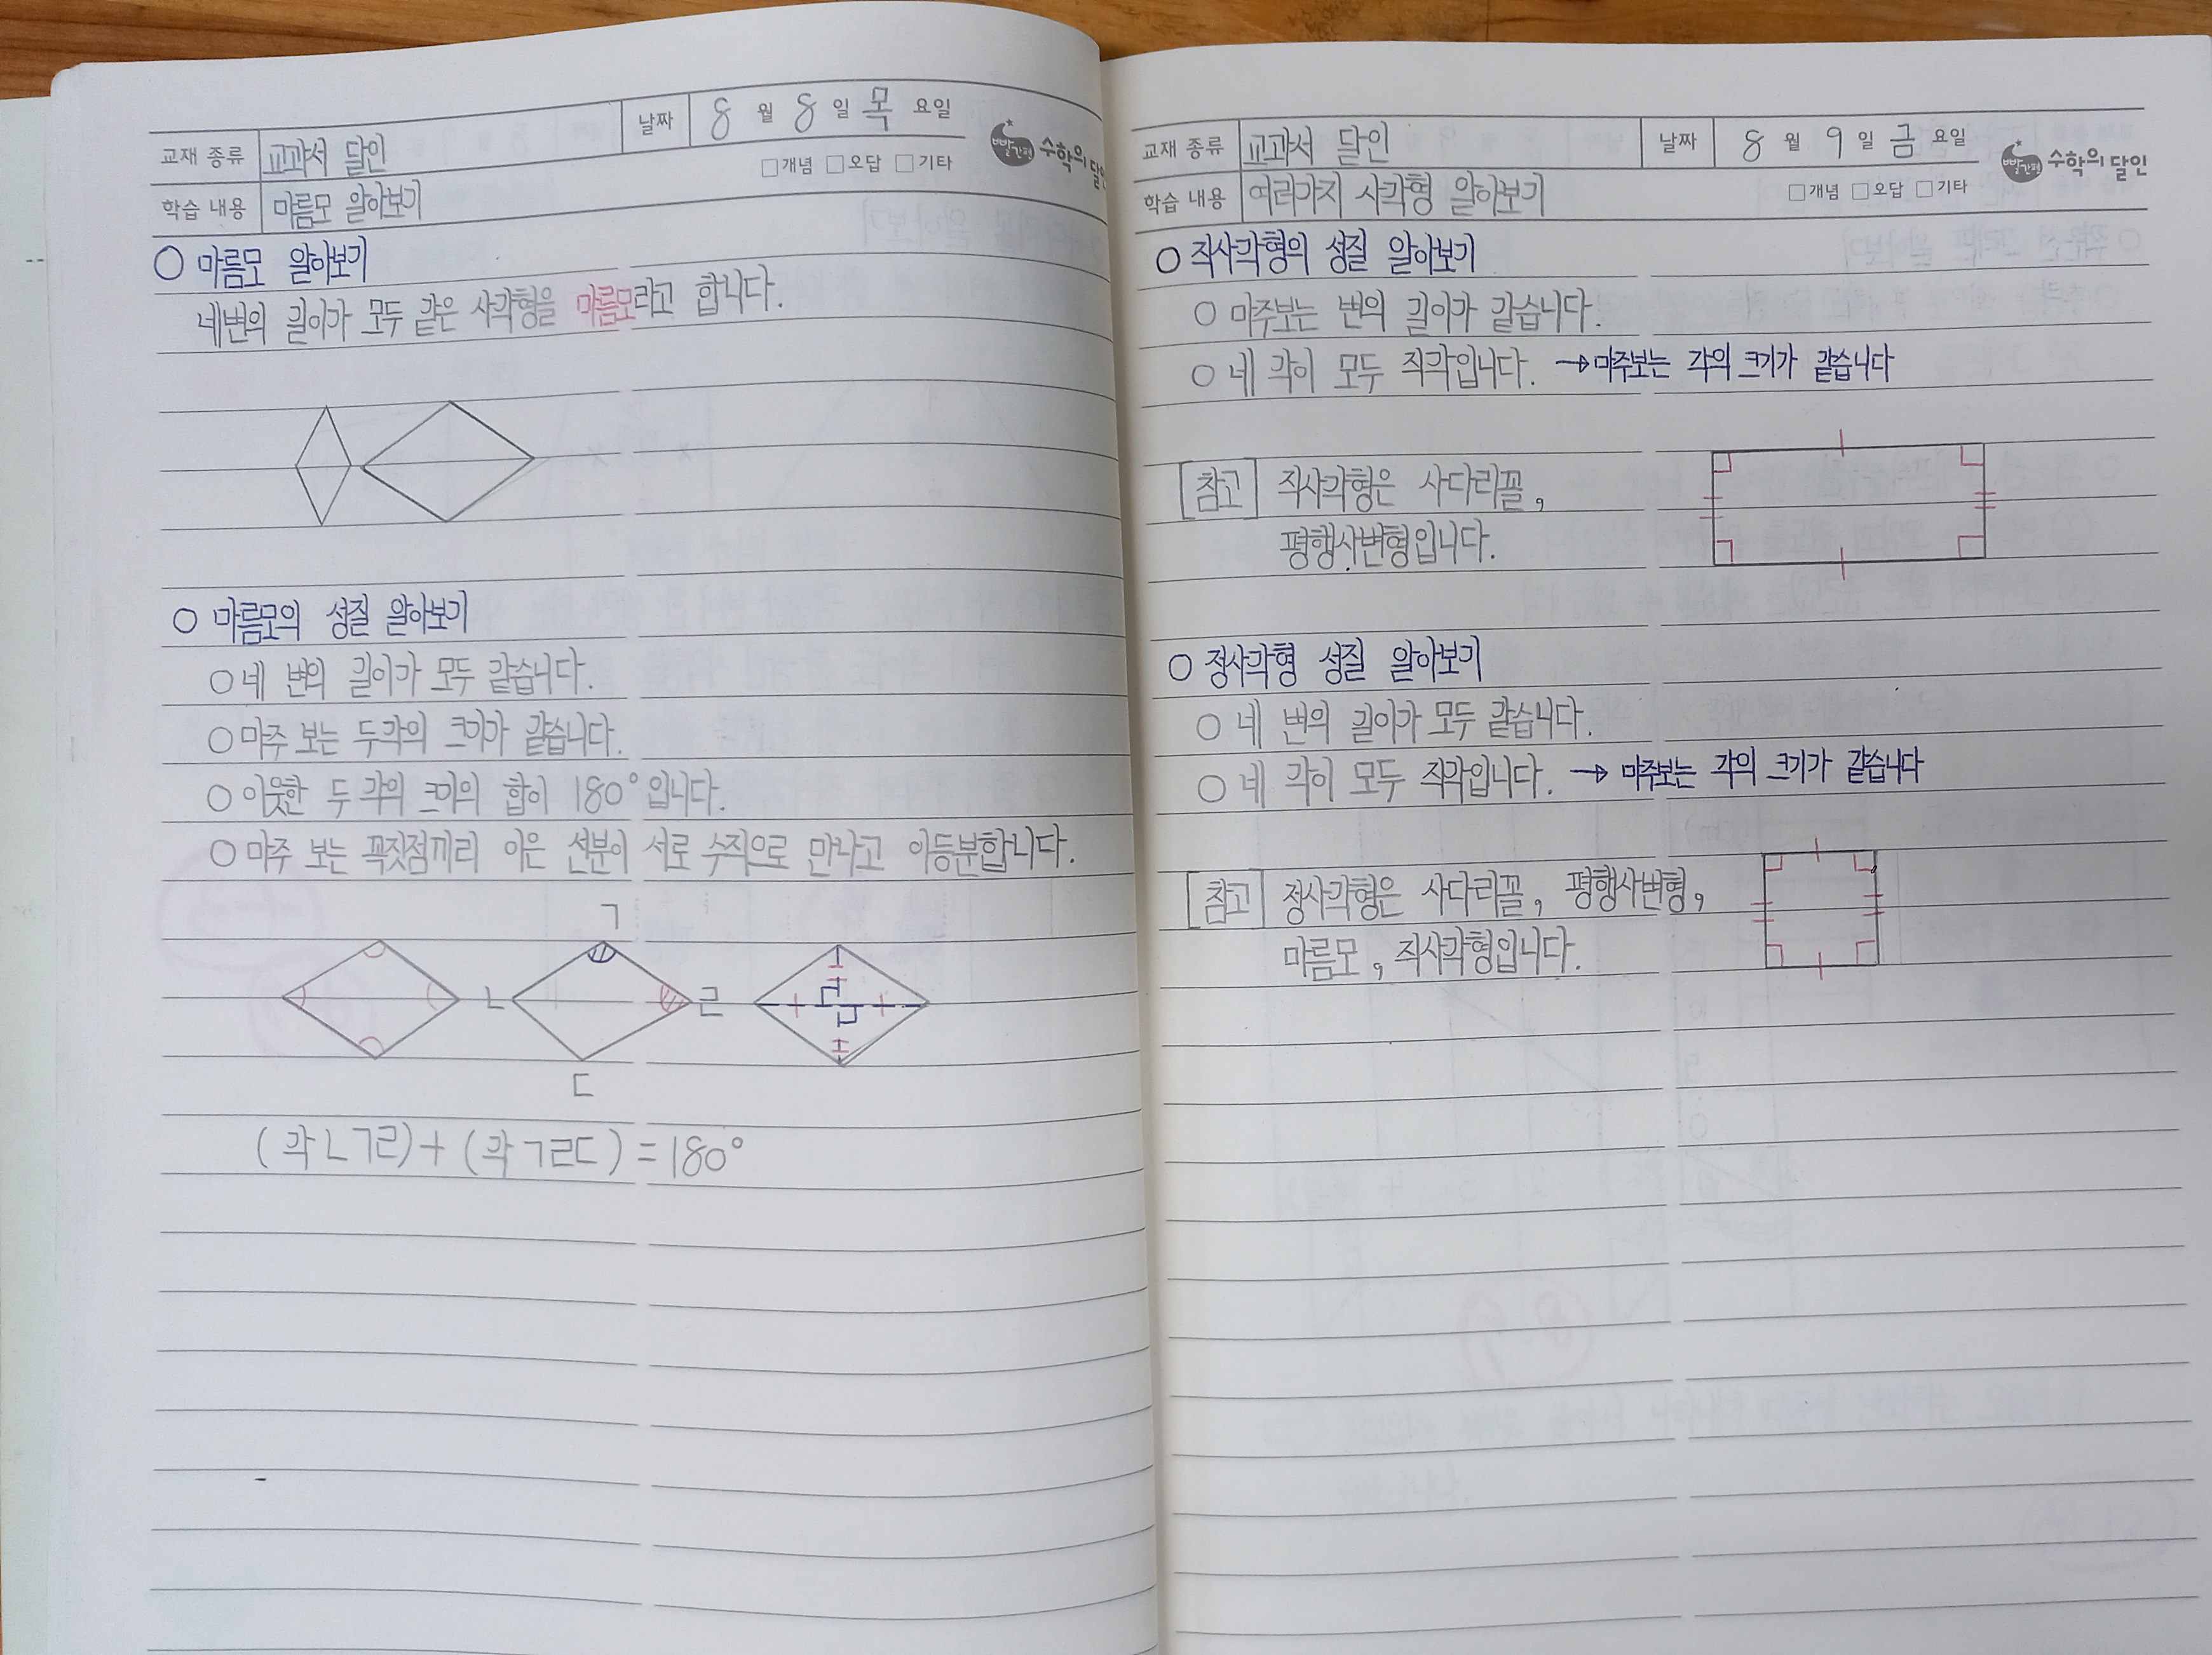 교재 종류 교과서 달인 날짜 8 월 8 일 목 요일
□개념 □오답 □기타
빨간펜 수학의 달인
학습 내용 마름모 알아보기
○ 마름모 알아보기
네변의 길이가 모두 같은 사각형을 마름모라고 합니다.
○ 마름모의 성질 알아보기
○ 네 변의 길이가 모두 같습니다.
○ 마주 보는 두각의 크기가 같습니다.
○ 이웃한 두 각의 크기의 합이 180°입니다.
○ 마주 보는 꼭짓점끼리 이은 선분이 서로 수직으로 만나고 이등분합니다.
ㄱ
ㄴ ㄹ
ㄷ
(각ㄴㄱㄹ)+(각ㄱㄹㄷ)=180°
교재 종류 교과서 달인 날짜 8 월 9 일 금 요일
□개념 □오답 □기타
빨간펜 수학의 달인
학습 내용 여러가지 사각형 알아보기
○ 직사각형의 성질 알아보기
○ 마주보는 변의 길이가 같습니다.
○ 네 각이 모두 직각입니다. →마주보는 각의 크기가 같습니다
[참고] 직사각형은 사다리꼴,
평행사변형입니다.
○ 정사각형 성질 알아보기
○ 네 변의 길이가 모두 같습니다.
○ 네 각이 모두 직각입니다. → 마주보는 각의 크기가 같습니다
[참고] 정사각형은 사다리꼴, 평행사변형,
마름모, 직사각형입니다.